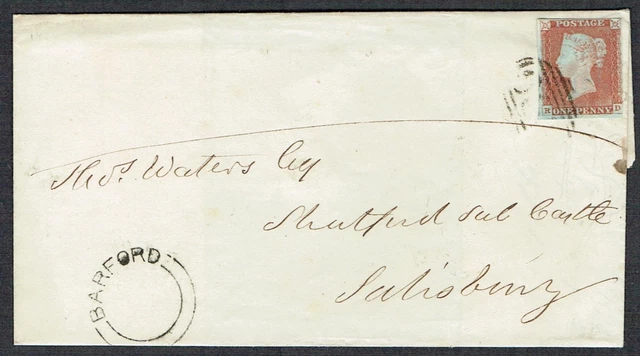 POSTAGE
B D
ONE PENNY
Thos. Waters Esq
Stratford sub Castle
Salisbury
BARFORD